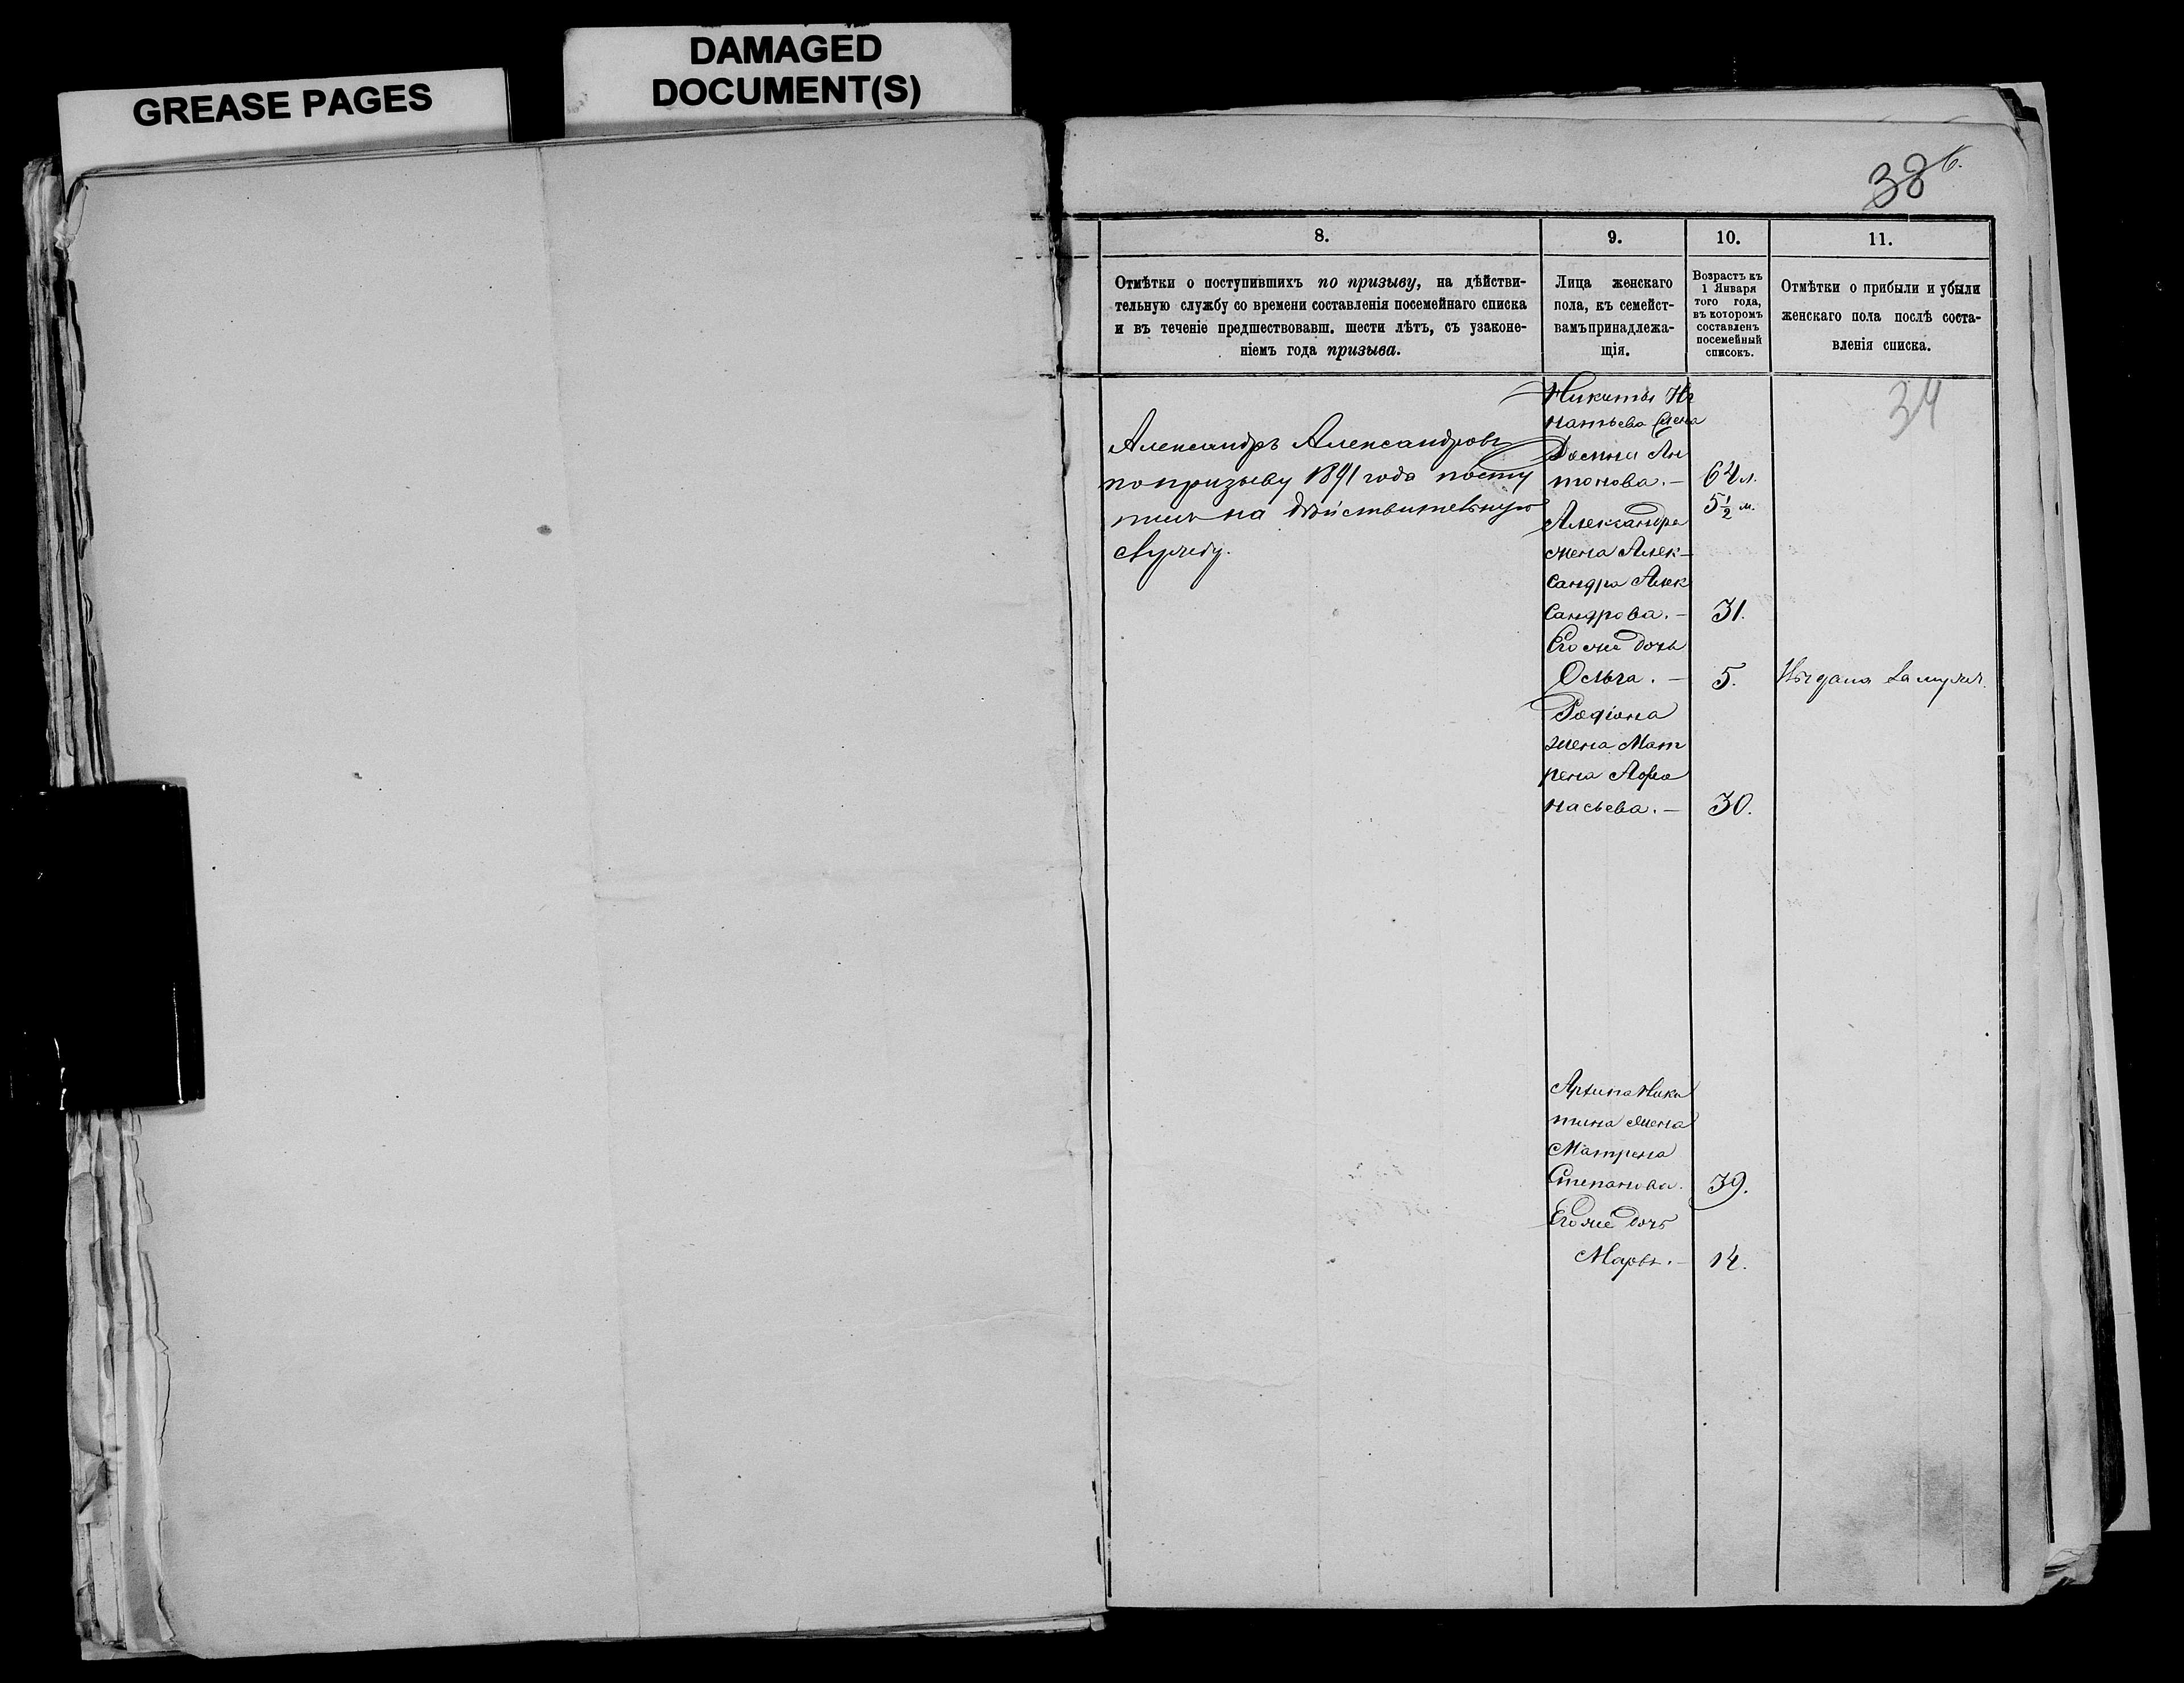 GREASE PAGES
DAMAGED
DOCUMENT(S)
38
8.
9.
10.
11.
Отмѣтки о поступившихъ по призыву, на дѣйстви-
тельную службу со времени составленія посемейнаго списка
и въ теченіе предшествовавш. шести лѣтъ, съ узаконе-
ніемъ года призыва.
Лица женскаго
пола, къ семейст-
вамъ принадлежа-
щія.
Возрастъ къ
1 Января
того года,
въ которомъ
составленъ
посемейный
списокъ.
Отмѣтки о прибыли и убыли
женскаго пола послѣ соста-
вленія списка.
34
Александръ Александровъ
по призыву 1891 года посту
пилъ на дѣйствительную
службу.
Никиты Иг
натьева жена
Домна Ан
тонова. — 64 л.
5½ м.
Александра
жена Алек-
сандра Алек
сандрова. — 31.
Его же дочь
Ольга. — 5. Выдана замужъ.
Родіона
жена Мат
рена Афа
насьева. — 30.
Архипа Ники
тина жена
Матрена
Степанова. 39.
Его же дочь
Марья. — 14.